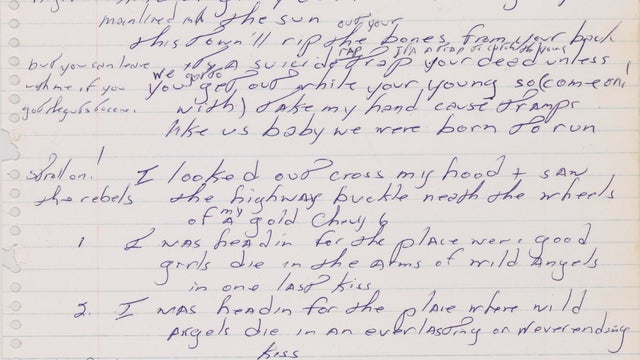 the sun out your
this town'll rip the bones from your back
but you can leave its a suicide trap your dead unless
rap its a trap to catch the young
with me if you we gotta you get out while your young so (come on
got the guts to come. with) take my hand cause tramps
like us baby we were born to run
I looked out cross my hood + saw
the rebels the highway buckle neath the wheels
of my a gold Chevy 6
1. I was headin for the place were good
girls die in the arms of wild Angels
in one last kiss
2. I was headin for the place where wild
Angels die in an everlasting or neverending
kiss